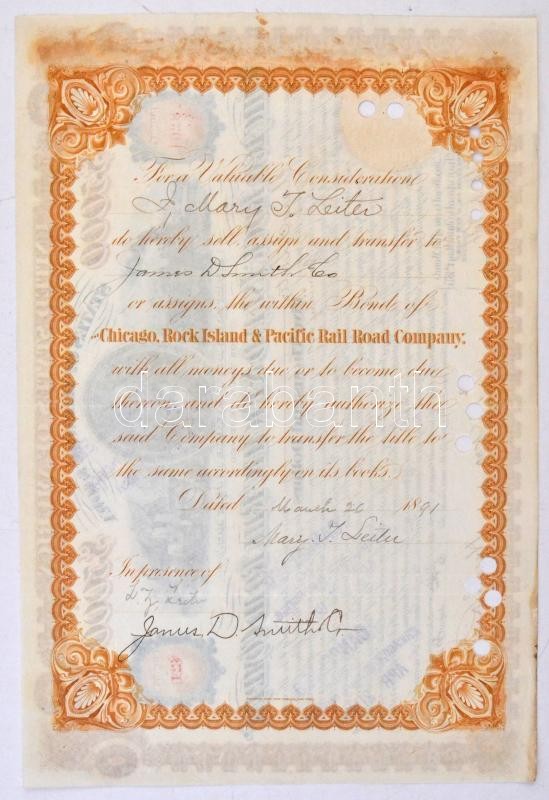 For a Valuable Consideration
I, Mary T. Leiter
do hereby sell, assign and transfer to
James D Smith & Co
or assigns, the within Bond of
the Chicago, Rock Island & Pacific Rail Road Company,
with all moneys due or to become due
thereon, and do hereby authorize the
said Company to transfer the title to
the same accordingly on its books.
darabanth
Dated March 26 1891
Mary. T. Leiter
In presence of
L. Z. Leiter
James D Smith & Co